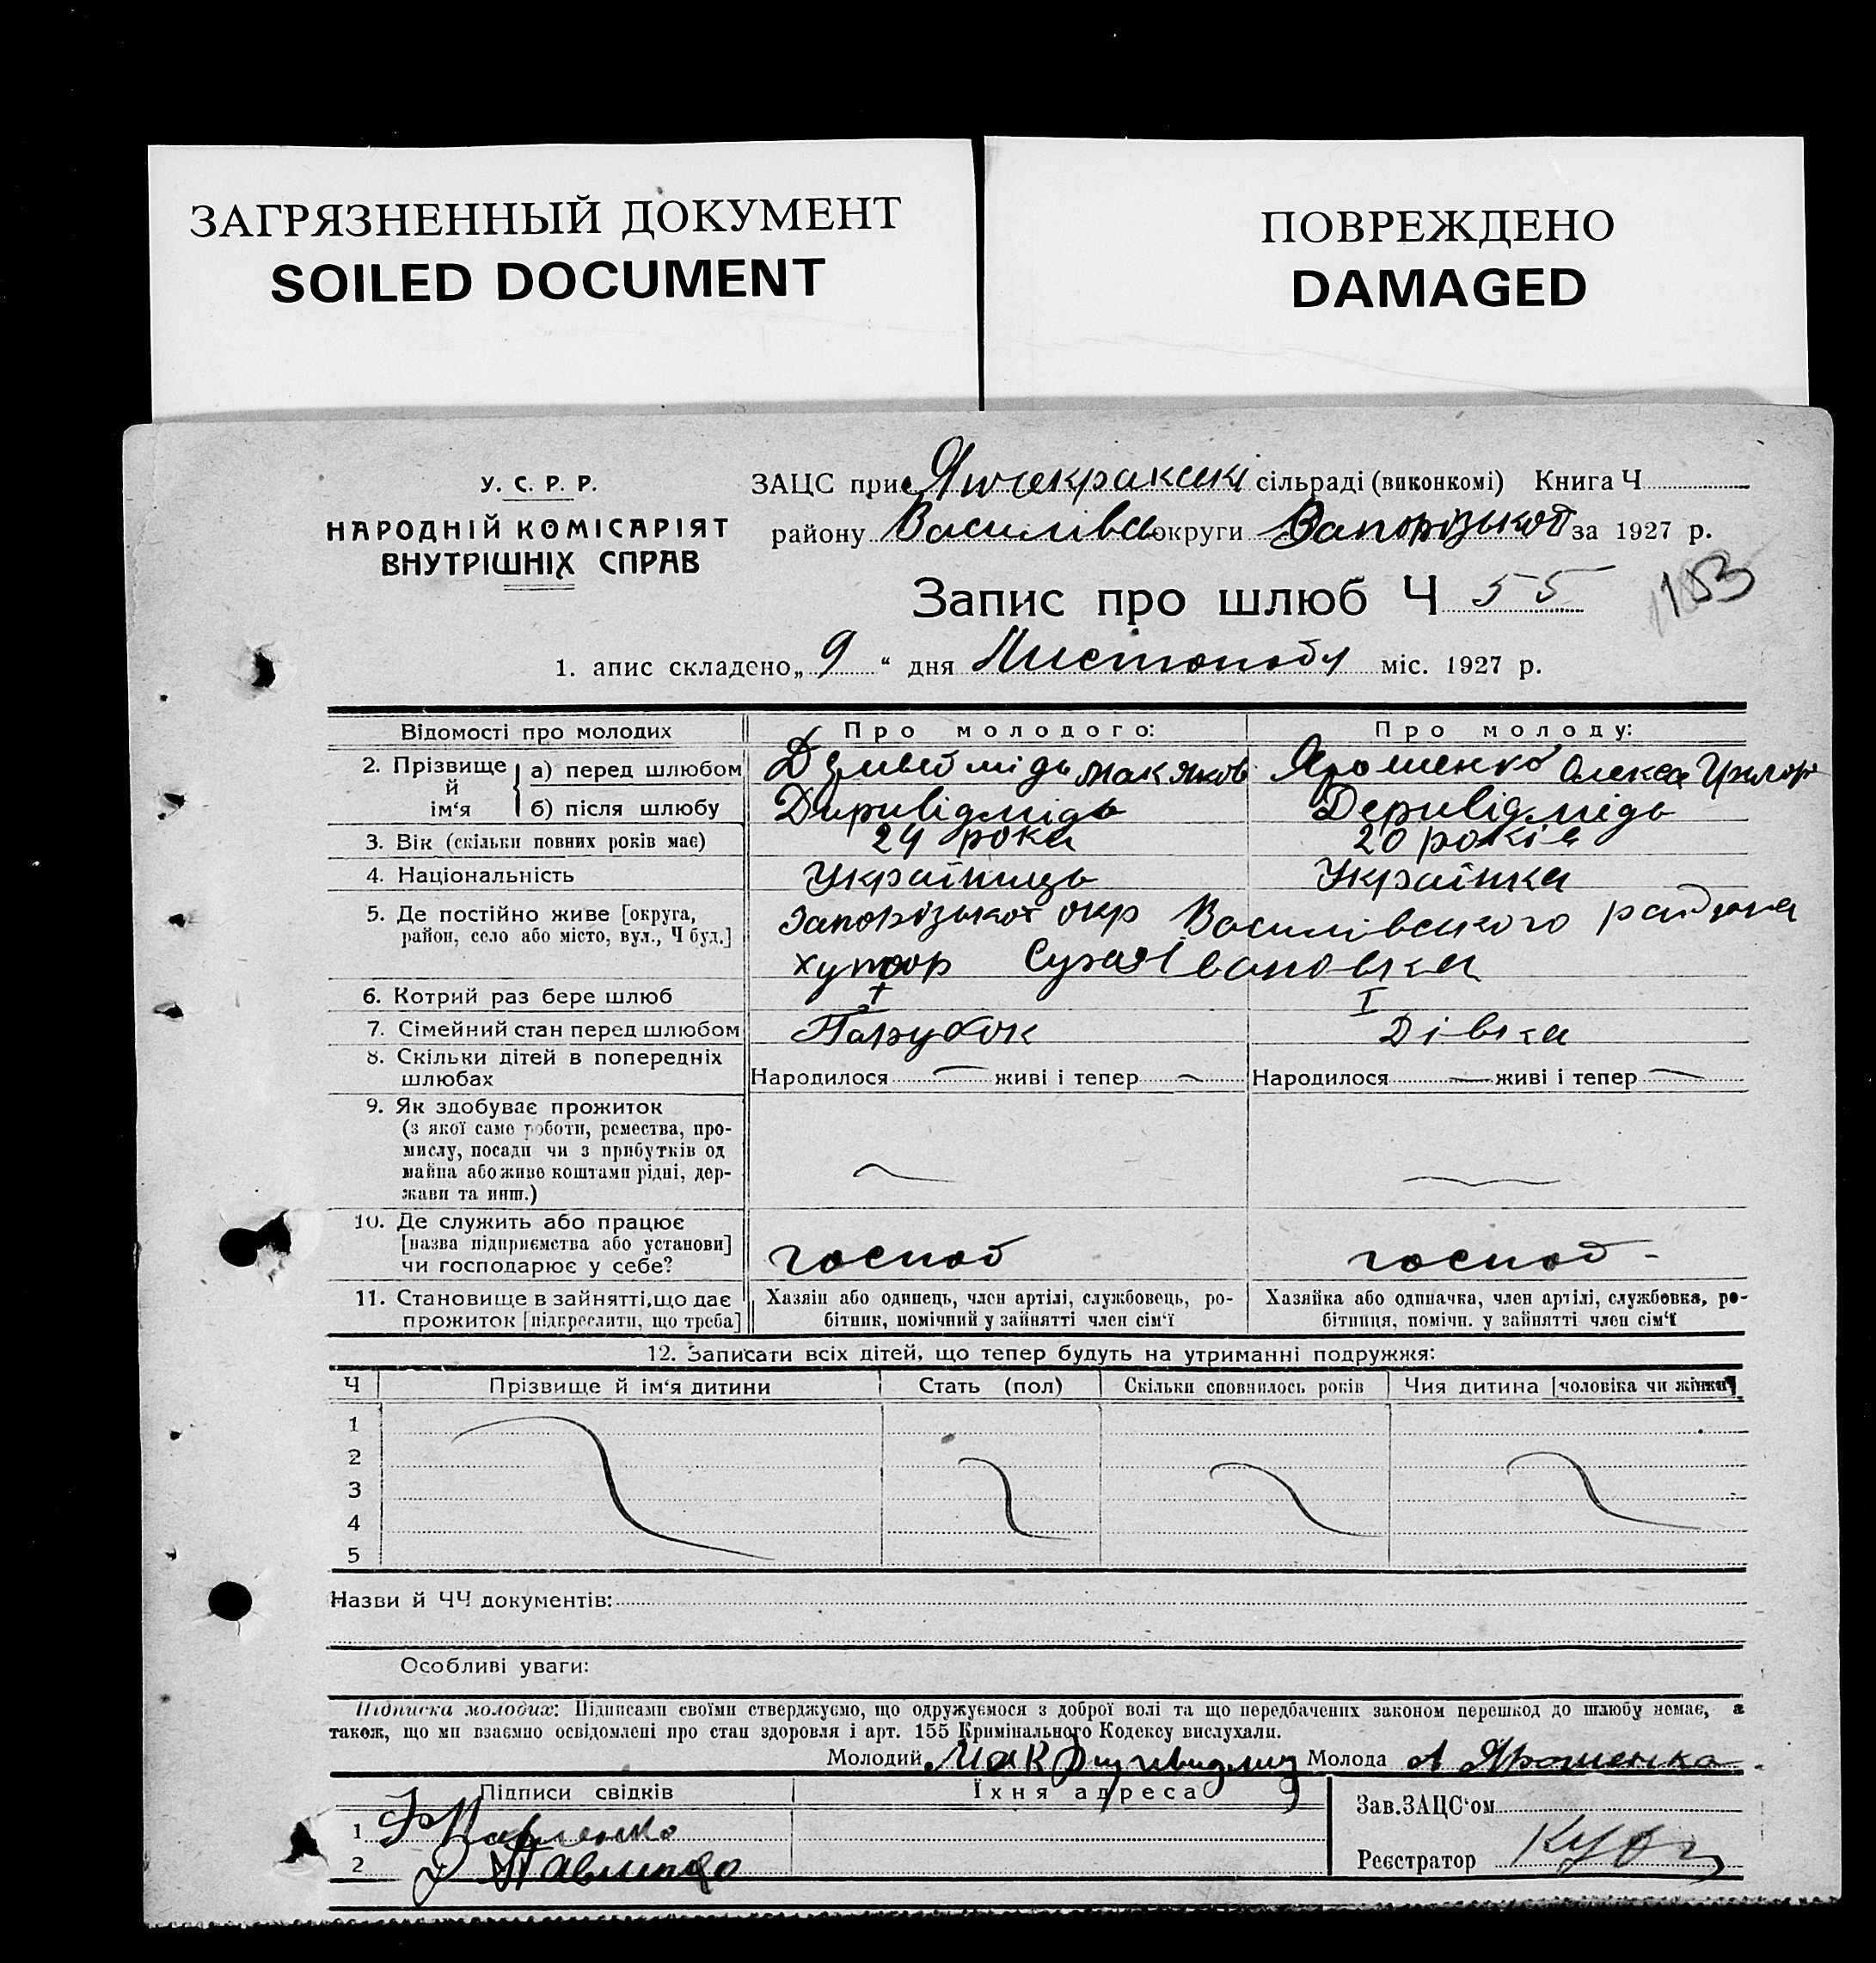 ЗАГРЯЗНЕННЫЙ ДОКУМЕНТ
SOILED DOCUMENT
ПОВРЕЖДЕНО
DAMAGED
У. С. Р. Р.
НАРОДНІЙ КОМІСАРІЯТ
ВНУТРІШНІХ СПРАВ
ЗАЦС при сільраді (виконкомі) Книга Ч
району Василівс округи Запорізької за 1927 р.
Запис про шлюб Ч 55
153
1. апис складено „ 9 “ дня Листопада міс. 1927 р.
Відомості про молодих Про молодого: Про молоду:
2. Прізвище й ім‘я а) перед шлюбом Мак Яков Ярошенко Олекса Григор
б) після шлюбу Деривідмідь
3. Вік (скільки повних років має) 24 рока 20 років
4. Національність Українець Українка
5. Де постійно живе [округа, район, село або місто, вул., Ч буд.] Запорізької окр Василівського района
хутор Сухоівановка
6. Котрий раз бере шлюб I I
7. Сімейний стан перед шлюбом Парубок Дівка
8. Скільки дітей в попередніх шлюбах Народилося — живі і тепер — Народилося — живі і тепер —
9. Як здобуває прожиток
(з якої саме роботи, ремества, про-
мислу, посади чи з прибутків од
майна або живе коштами рідні, дер-
жави та инш.)
10. Де служить або працює
[назва підприємства або установи]
чи господарює у себе? господ господ-
11. Становище в зайнятті, що дає
прожиток [підкреслити, що треба]
Хазяін або одинець, член артілі, службовець, ро-
бітник, помічний у зайнятті член сім‘ї
Хазяйка або одиначка, член артілі, службовка, ро-
бітниця, помічн. у зайнятті член сім‘ї
12. Записати всіх дітей, що тепер будуть на утриманні подружжя:
Ч Прізвище й ім‘я дитини Стать (пол) Скільки сповнилось років Чия дитина [чоловіка чи жінки]
1
2
3
4
5
Назви й ЧЧ документів:
Особливі уваги:
Підписка молодих: Підписами своїми стверджуємо, що одружуємося з доброї волі та що передбачених законом перешкод до шлюбу немає, а
також, що ми взаємно освідомлені про стан здоровля і арт. 155 Кримінального Кодексу вислухали.
Молодий Мак Молода А Ярошенка
Підписи свідків Їхня адреса Зав. ЗАЦС‘ом
1
2 Реєстратор